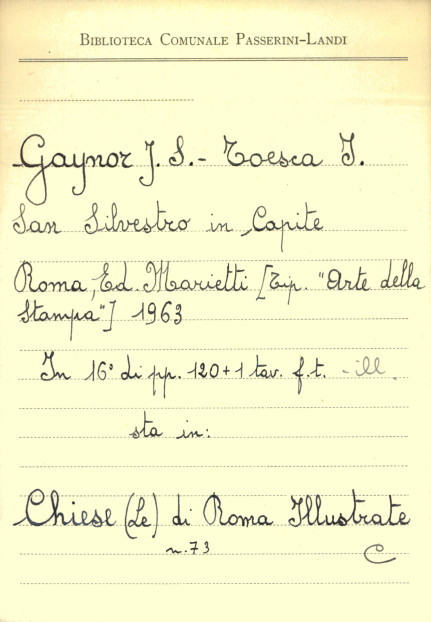 BIBLIOTECA COMUNALE PASSERINI-LANDI
Gaynor J. S. - Toesca I.
San Silvestro in Capite
Roma, Ed. Marietti [Tip. "Arte della
Stampa"] 1963
In 16° di pp. 120+1 tav. f.t. - ill.
sta in:
Chiese (Le) di Roma Illustrate
n. 73
C